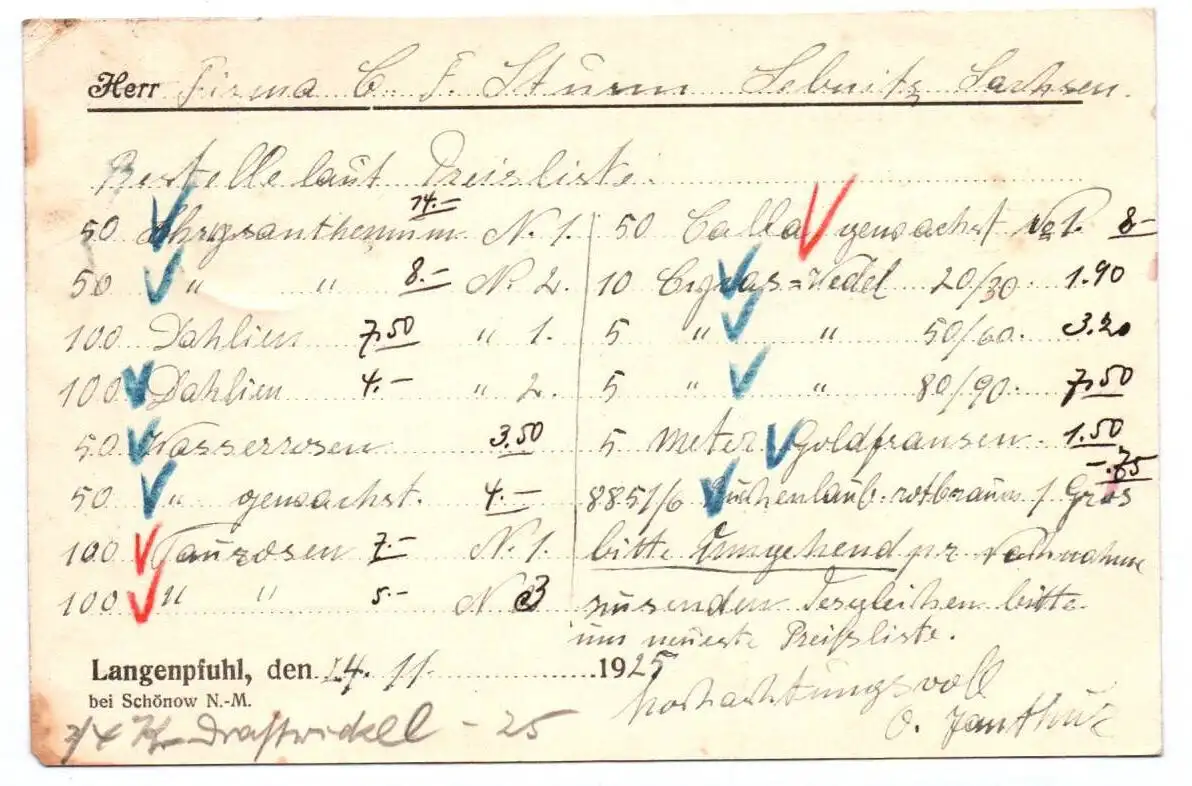 Herr Firma C. F. Sturm Sebnitz Sachsen.
Bestelle laut Preisliste.
50 Chrysanthemum 14.– N. 1.
50 " " 8.– N. 2.
100 Dahlien 7,50 " 1.
100 Dahlien 4.– " 2.
50 Wasserrosen 3.50
50 " gewachst. 4.–
100 Taurosen 7.– N. 1.
100 " " 5.– N 3
50 Calla gewachst No 1. 8–
10 Cycas=Wedel 20/30 1.90
5 " " 50/60. 3.20
5 " " 80/90. 7,50
5 Meter Goldfransen 1.50
8851/6 Buchenlaub rotbraun 1 Gros –.75
bitte Umgehend pr Nachnahme
zusenden Desgleichen bitte
um neueste Preißliste.
Langenpfuhl, den 14. 11. 1925
bei Schönow N.-M.
hochachtungsvoll
O.
3/4 Draftwickell – 25